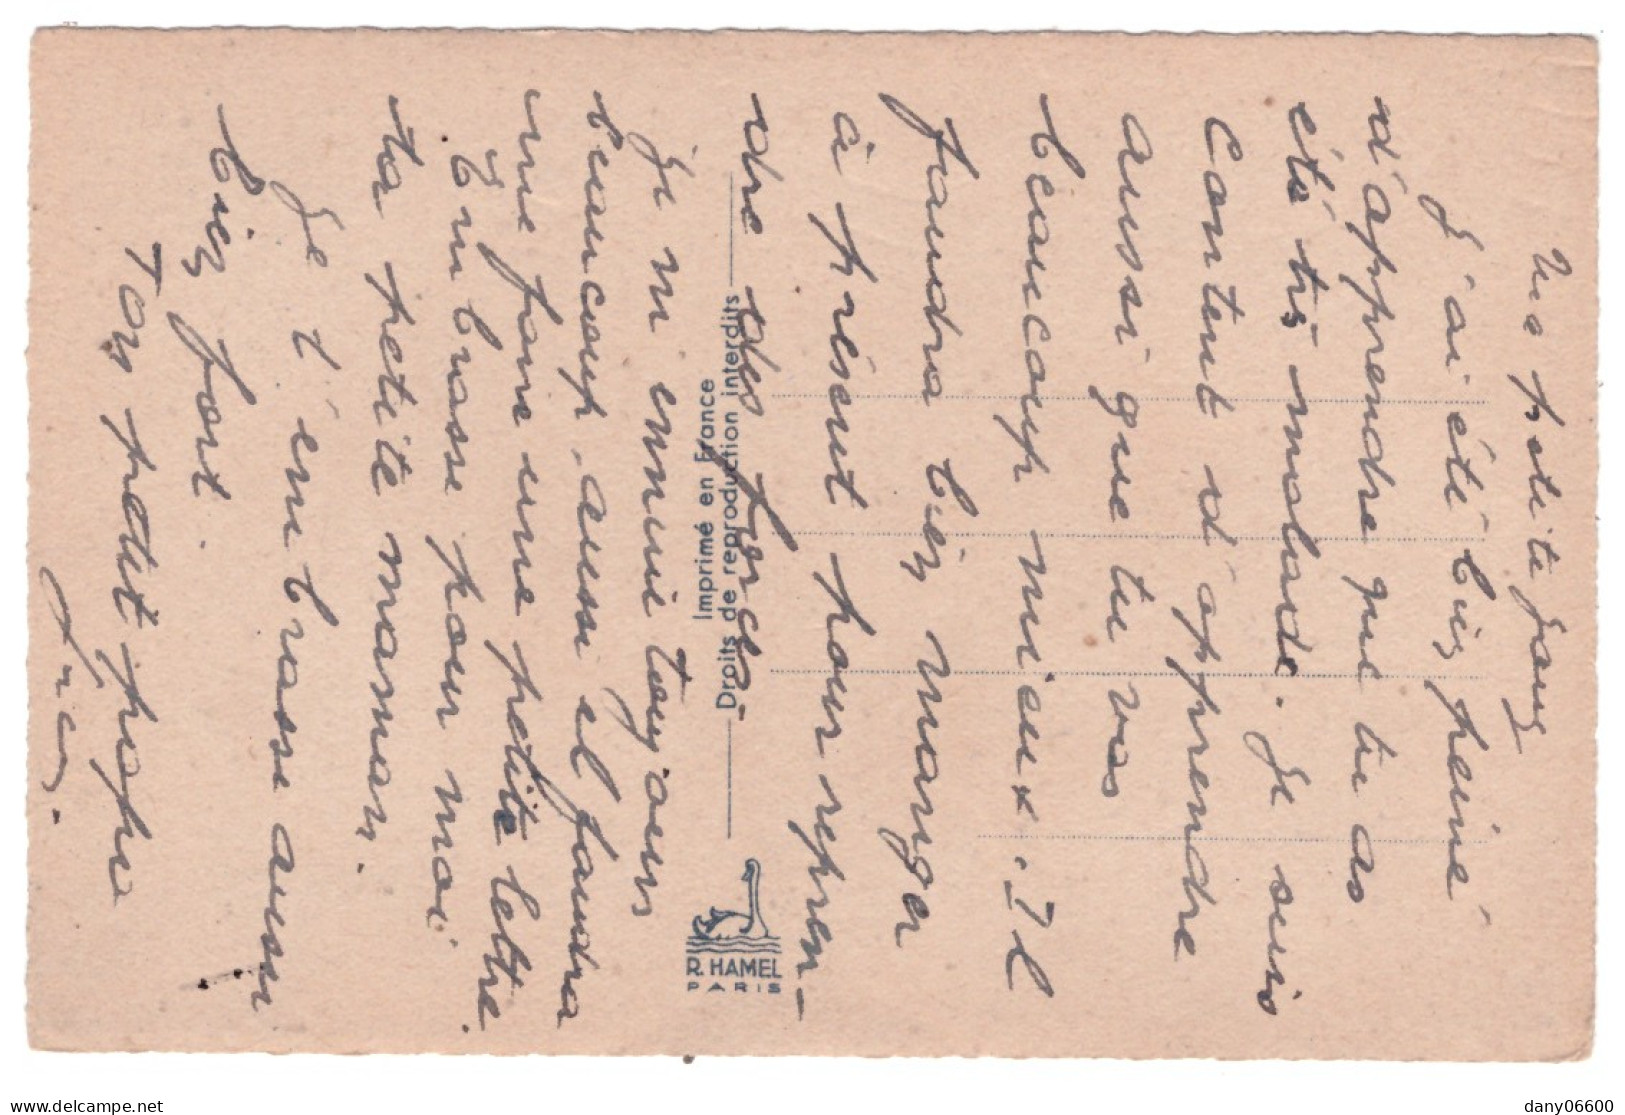 Ma petite Jany
J'ai été bien peiné
d'apprendre que tu as
été très malade. Je suis
Content d'apprendre
aussi que tu vas
beaucoup mieux. Il
faudra bien manger
à présent pour repren-
dre des forces.
Je m'ennuie toujours
beaucoup, aussi il faudra
me faire une petite lettre
Embrasse pour moi
ta petite maman.
Je t'embrasse aussi
bien fort.
Ton petit papa
Imprimé en France
Droits de reproduction interdits
R. HAMEL
PARIS
delcampe.net
dany06600